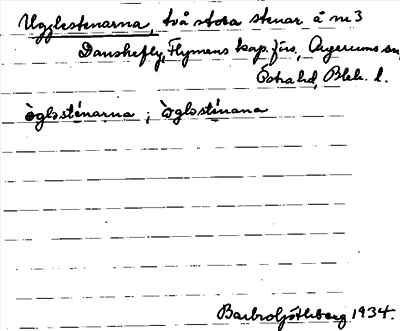 Ugglestenarna, två stora stenar å m3
Danskefly, Flymens kap.förs., Augerums sn,
Östra hd, Blek. l.
ògləsténarna ; ògləsténana
Barbro Götleborg 1934.